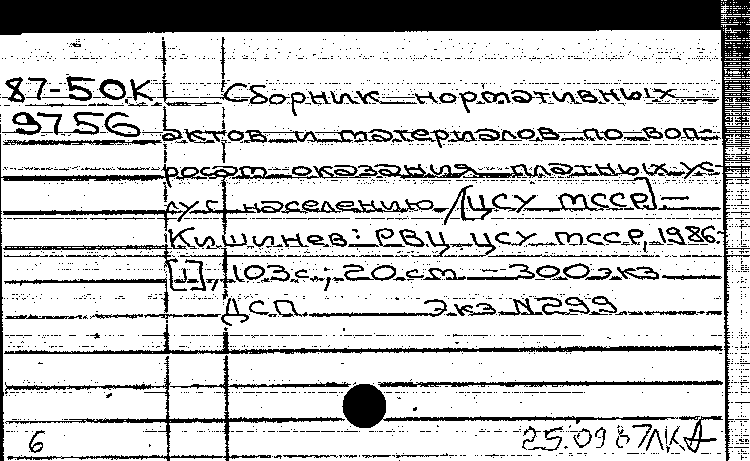 87-50К Сборник нормативных
9756 актов и материалов по воп-
росам оказания платных ус-
луг населению /[ЦСУ МССР].—
Кишинев: РВЦ ЦСУ МССР, 1986.-
[1], 103 с.; 20 см. - 300 экз
ДСП Экз N299
6 25.09 87